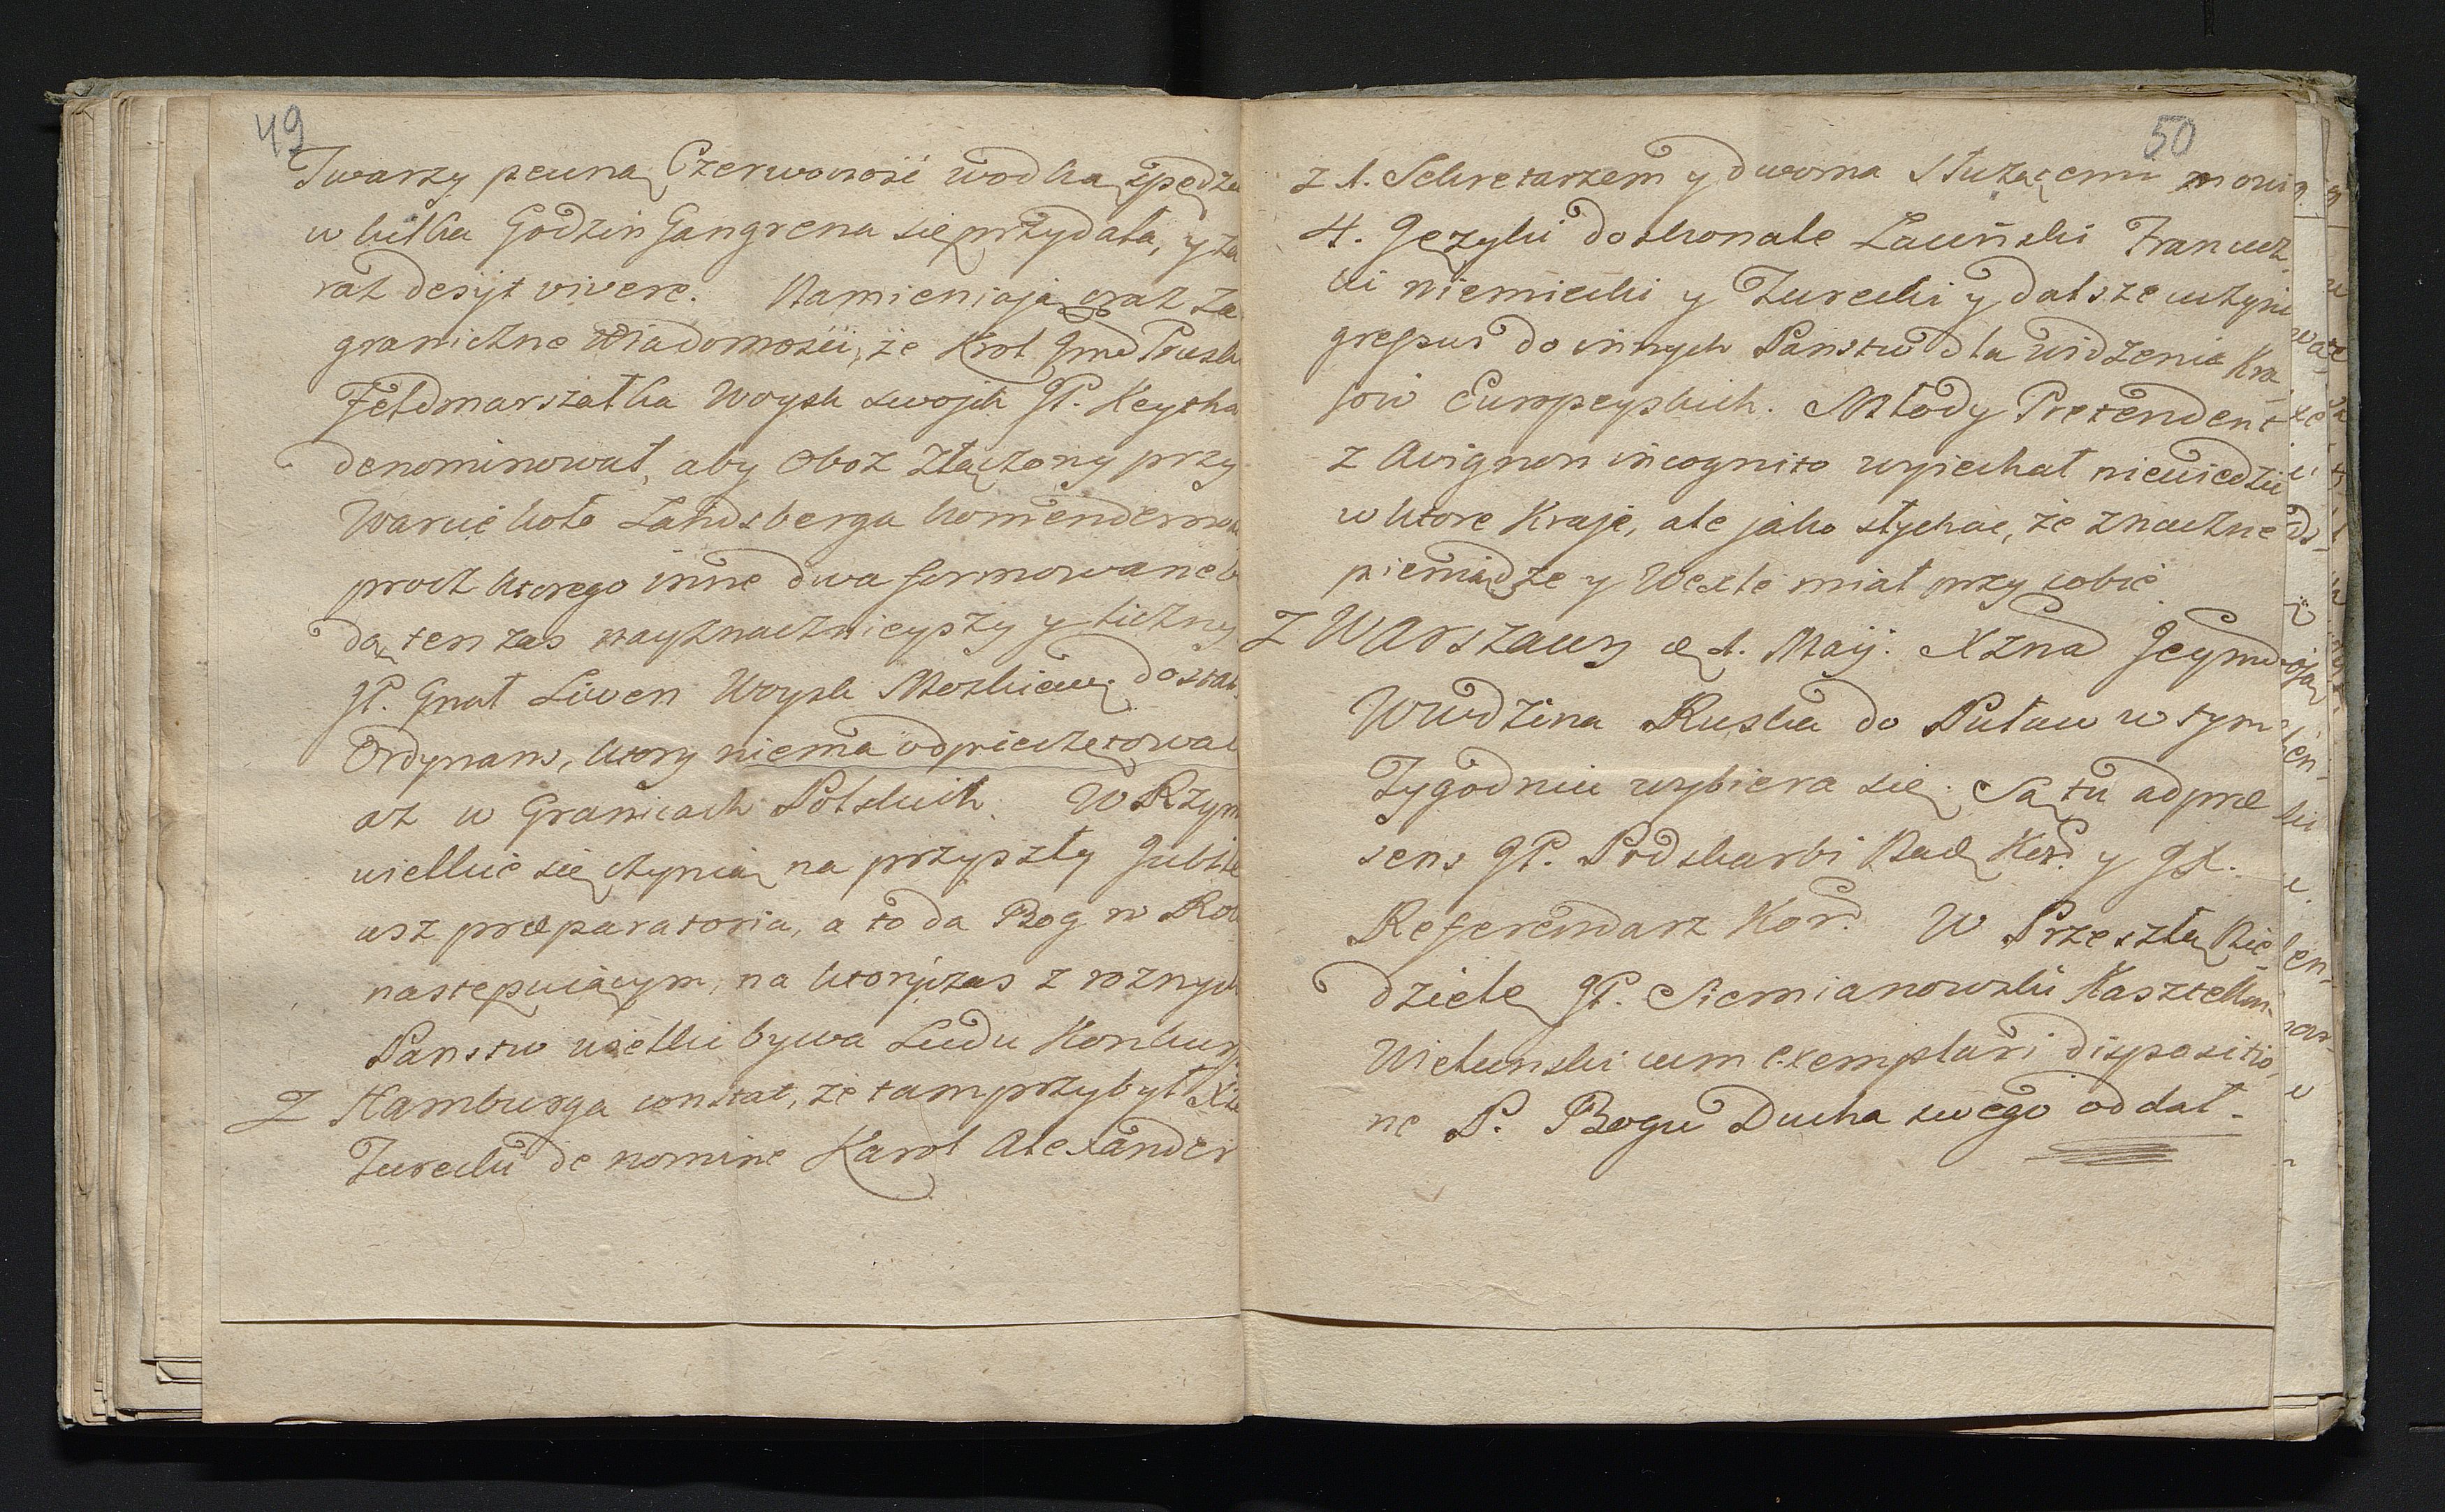 49
Twarzy pewną Czerwoność wodką spędza
w kilka Godzin Gangrena się przydała, y za
raz desyt vivere. Namieniają oraz Za
graniczne Wiadomości, że Krol Jmć Prusk
Feldmarszałka Woysk swojch JP. Keytha
denominował, aby Oboz złączony przy
Warcie koło Landsberga kommenderował
procz ktorego inne dwa formowane b
dą, ten zas nayznacznieyszy y liczny
JP. Gnał Liwen Woysk Moskiew. dostał
Ordynans, ktory niema odpieczętować
az w Granicach Polskich. W Rzym
wielkie się czynią na przyszły Jubile
usz præparatoria, a to da Bog w Rok
następuiącym, na ktory czas z roznych
Panstw wielki bywa Ludu Konkurs
Z Hamburga constat, że tam przybył Xże
Turecki de nomine Karol Alexander
50
z 1. Sekretarzem y dwoma Służącemi mowi
4. Języki doskonale Laciński Francuz
ki niemiecki y Turecki y dalsze czyni
gressus do innych Panstw dla widzenia Kra
jow Europeyskich. Młody Pretendent
z Avignon incognito wyiechał niewiedzieć
w ktore Kraje, ale jako słychać, że znaczne
pieniądze y Wexle miał przy sobie
Z Warszawy d 1. Maij. Xzna Jeymć
Wwdzina Ruska do Puław w tym
Tygodniu wybiera się. Są tu ad præ
sens JP. Podskarbi Nad Kor. y JX.
Referendarz Kor. W Przeszłą Nie
dzielę JP. Siemianowski Kasztellan
Wielunski cum exemplari dispositio
ne P. Bogu Ducha swego oddał.